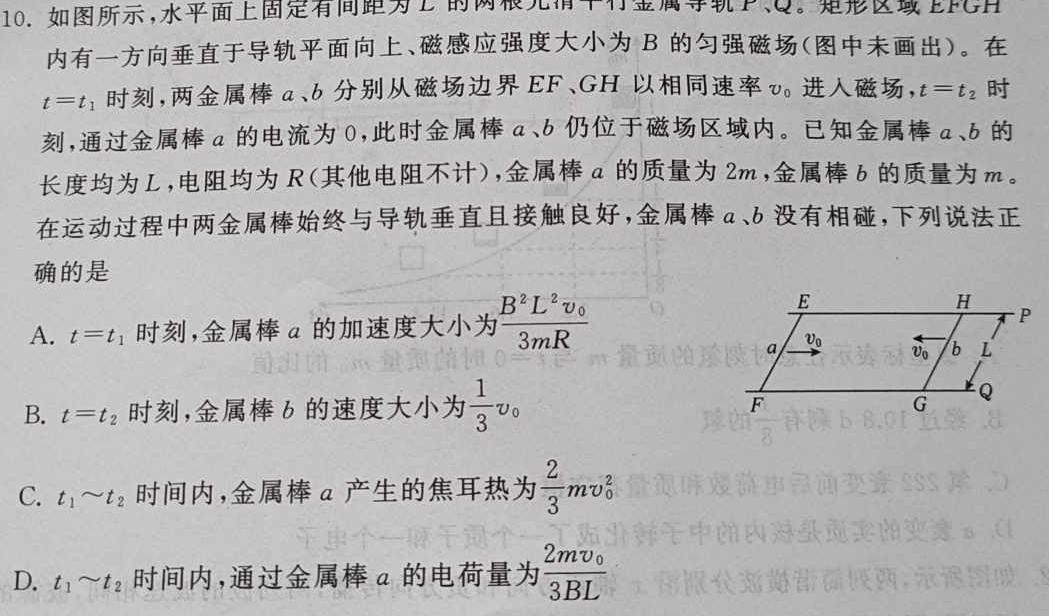 10. 如图所示,水平面上固定有间距为 L 的两根光滑平行金属导轨 P、Q。矩形区域 EFGH
内有一方向垂直于导轨平面向上、磁感应强度大小为 B 的匀强磁场(图中未画出)。在
t=t₁ 时刻,两金属棒 a、b 分别从磁场边界 EF、GH 以相同速率 v₀ 进入磁场,t=t₂ 时
刻,通过金属棒 a 的电流为 0,此时金属棒 a、b 仍位于磁场区域内。已知金属棒 a、b 的
长度均为 L,电阻均为 R(其他电阻不计),金属棒 a 的质量为 2m,金属棒 b 的质量为 m。
在运动过程中两金属棒始终与导轨垂直且接触良好,金属棒 a、b 没有相碰,下列说法正
确的是
A. t=t₁ 时刻,金属棒 a 的加速度大小为 B²L²v₀/3mR
B. t=t₂ 时刻,金属棒 b 的速度大小为 1/3 v₀
C. t₁~t₂ 时间内,金属棒 a 产生的焦耳热为 2/3 mv₀²
D. t₁~t₂ 时间内,通过金属棒 a 的电荷量为 2mv₀/3BL
E H P
a v₀ v₀ b L
F G Q